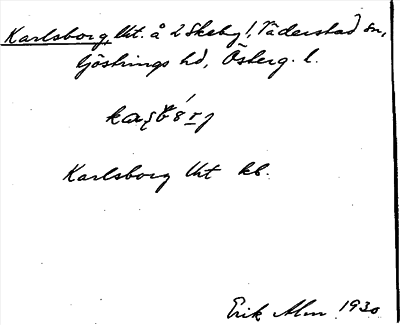 Karlsborg, lht. å 2 Skeby 1, Väderstad sn,
Göstrings hd, Österg. l.
Karlsborg lht kb.
Erik Alm 1930